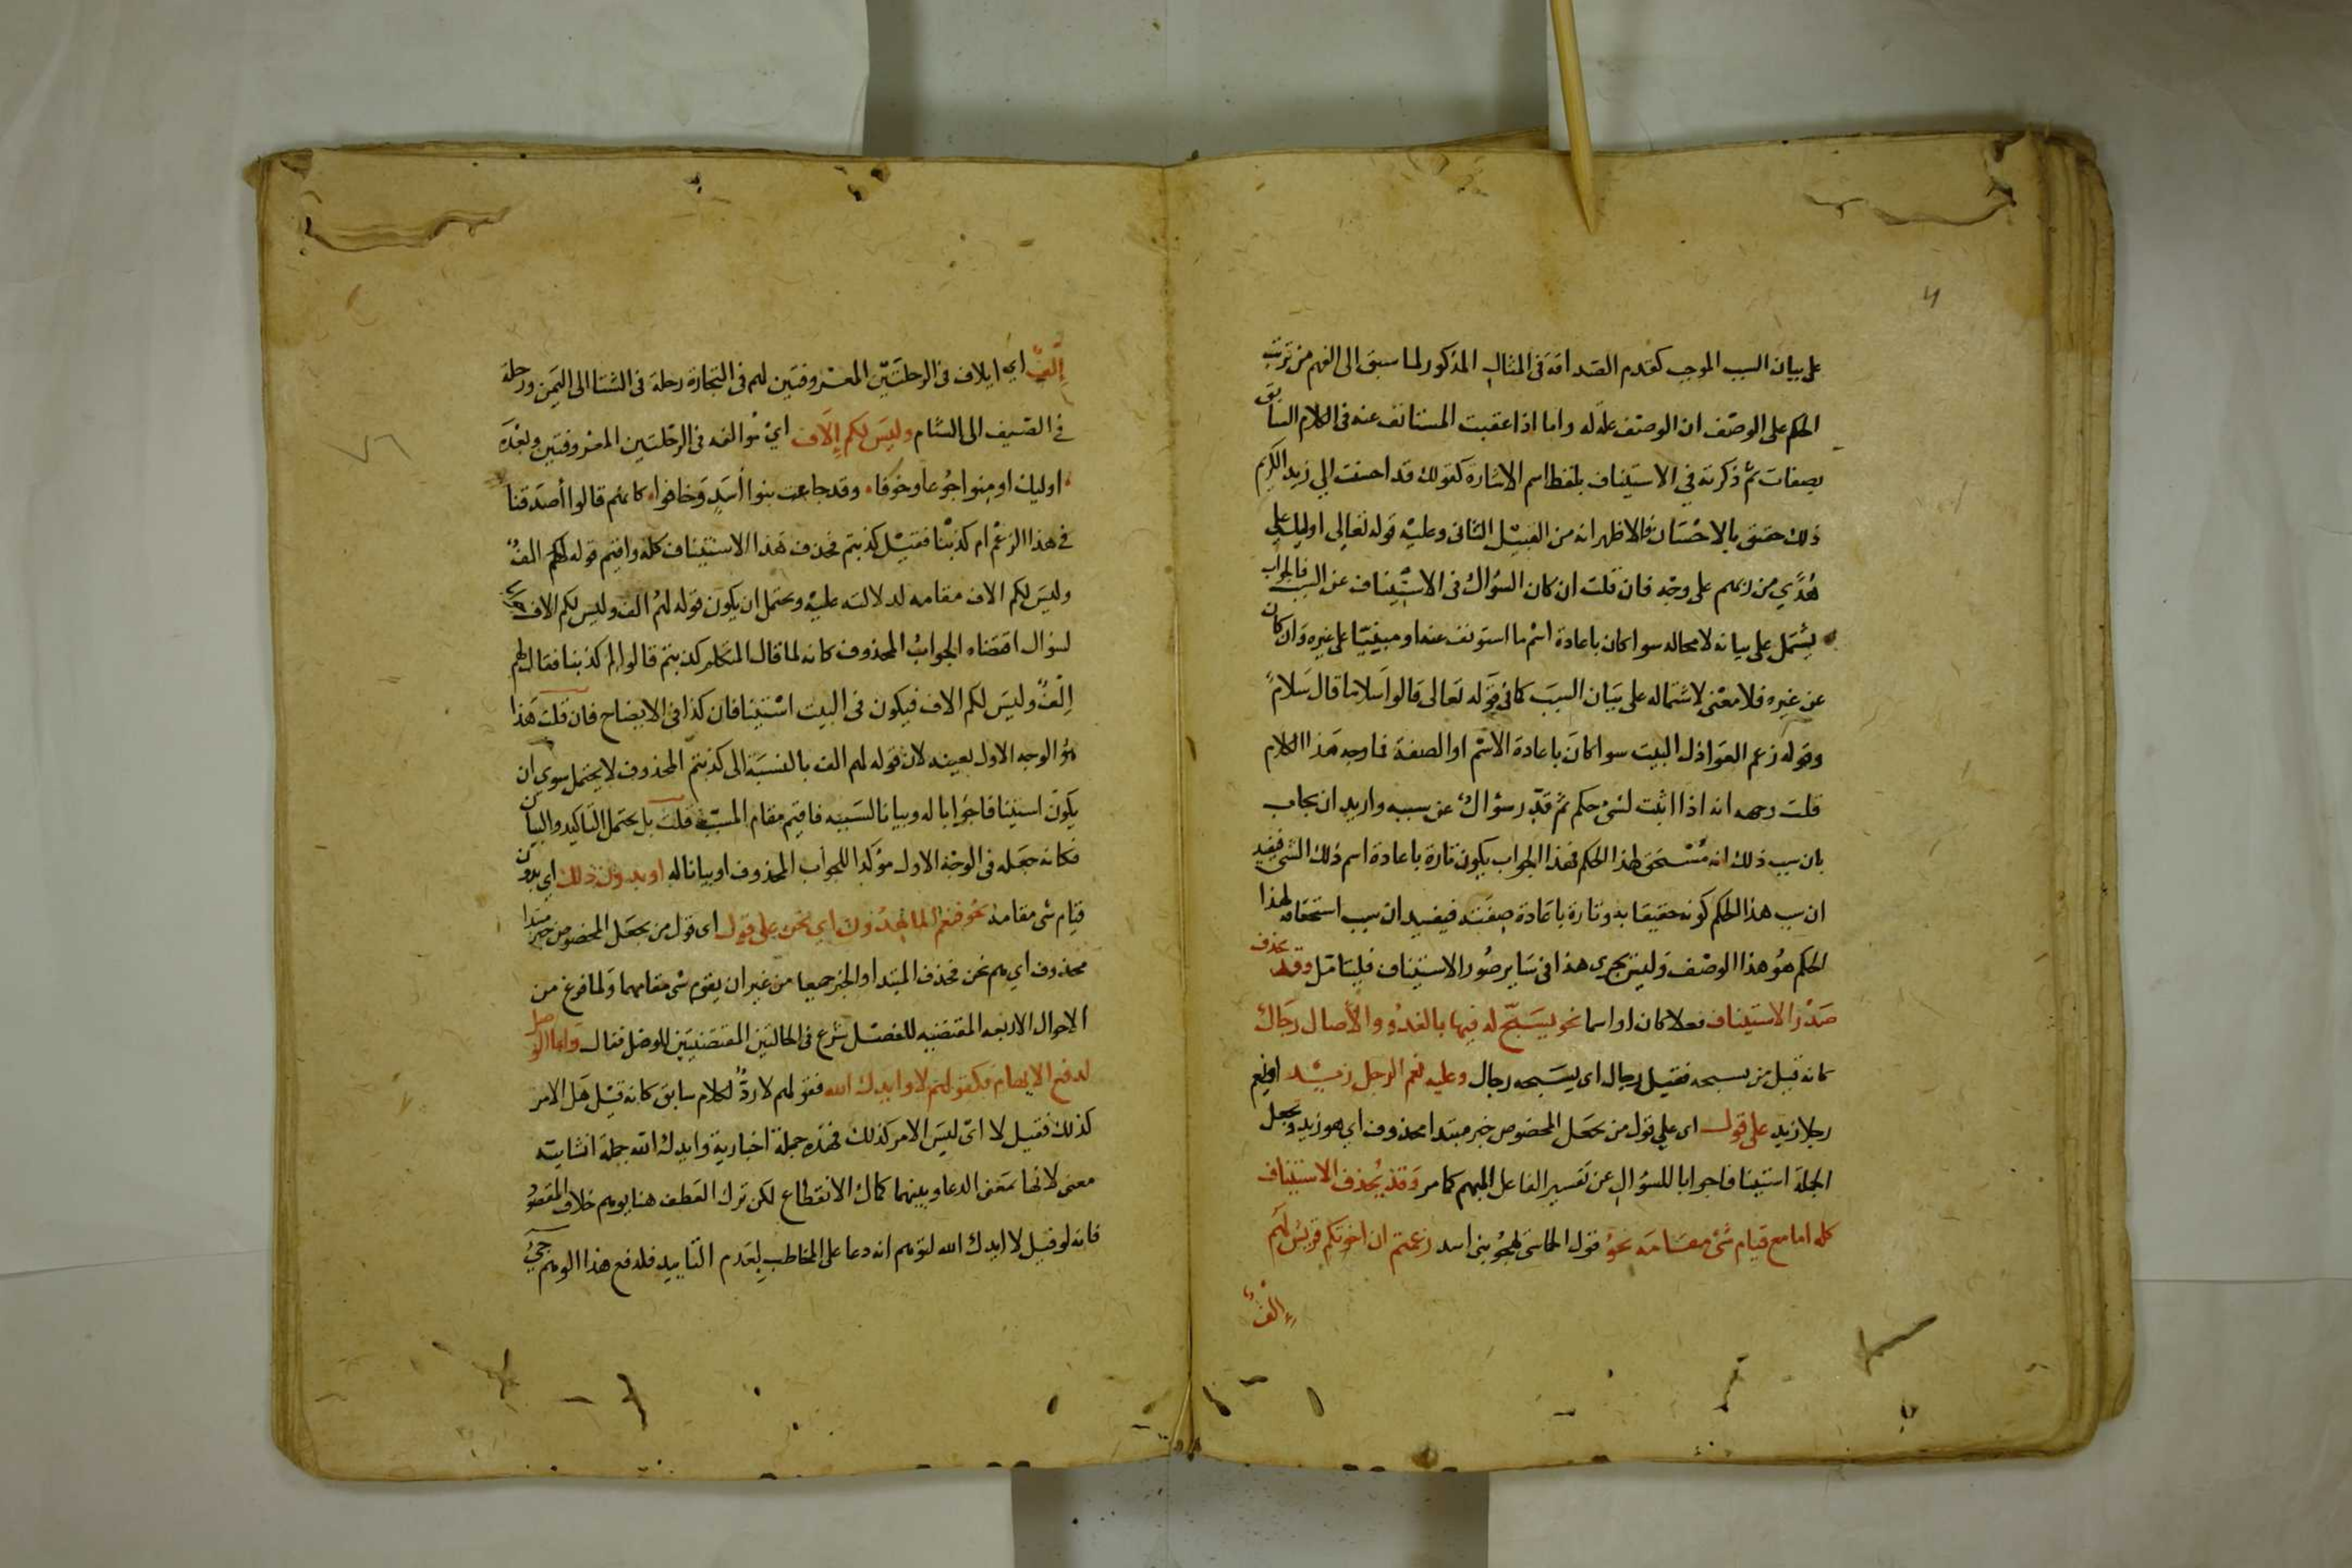 على بيان السبب الموجب كقدم الصداقة في المثال المذكور لما سبق الى الفهم من ترتب
الحكم على الوصف ان الوصف علة له واما اذا عقبت المستانف عنه في الكلام السابق
بصفات ثم ذكرته في الاستيناف بلفظ اسم الاشارة كقولك قد احسنت الي زيد الكريم
ذلك حقيق بالاحسان فالاظهر انه من القبيل الثاني وعليه قوله تعالى اوليك على
هُدًى من ربهم على وجه فان قلت ان كان السؤال في الاستيناف عن السبب فالجواب
يشتمل على بيانه لا محالة سوا كان باعادة اسم ما استونف عنه او مبنيا على غيره وان كان
عن غيره فلا معنى لاشتماله على بيان السبب كما في قوله تعالى قالوا سلاما قال سلام
وقوله زعم العواذل البيت سوا كان باعادة الاسم او الصفة فما وجه هذا الكلام
قلت وجهه انه اذا اثبت لشئ حكم ثم قدّر سؤال عن سببه واريد ان يجاب
بان سبب ذلك انه مستحق لهذا الحكم فهذا الجواب يكون تارة باعادة اسم ذلك الشئ فيفيد
ان سبب هذا الحكم كونه حقيقا به وتارة باعادة صفته فيفيد ان سبب استحقاقه لهذا
الحكم هو هذا الوصف وليس يجري هذا في ساير صور الاستيناف فليتامل وقد يحذف
صَدْر الاستيناف فعلا كان او اسما نحو يسبّح له فيها بالغدُو والآصال رجال
كانه قيل من يسبحه فقيل رجال اى يسبحه رجال وعليه نعم الرجل زيد او نعم
رجلا زيد على قول اى على قول من يجعل المخصوص خبر مبتدا محذوف اي هو زيد ويجعل
الجملة استينافا جوابا للسؤال عن تفسير الفاعل المبهم كما مر وقد يُحذف الاستيناف
كله اما مع قيام شئ مقامه نحو قول الحماسي لهجو بني اسد زعمتم ان اخوتكم قريش لهم
إلفٌ
إلفٌ اي ايلاف في الرحلتين المعروفتين لهم في التجارة رحلة في الشتا الى اليمن ورحلة
في الصيف الى الشام وليس لكم إلاف اي مؤالفة في الرحلتين المعروفتين وبعده
اوليك اومنوا جُوعا وخوفا وقد جاعت بنوا أسدٍ وخافوا كانهم قالوا أصدقنا
في هذا الزعم ام كذبنا فقيل كذبتم فحذف هذا الاستيناف كله واقيم قوله لهم الفٌ
وليس لكم الاف مقامه لدلالته عليه ويحتمل ان يكون قوله لهم الف وليس لكم الاف
لسؤال اقتضاه الجواب المحذوف كانه لما قال المتكلم كذبتم قالوا لم كذبنا فقال لهم
الفٌ وليس لكم الاف فيكون في البيت استينافان كذا في الايضاح فان قلت هذا
هو الوجه الاول بعينه لان قوله لهم الف بالنسبة الى كذبتم المحذوف لا يحتمل سوى ان
يكون استينافا جوابا له وبيانا لسببه فاقيم مقام المسبب قلت بل يحتمل التاكيد والبيان
فكانه جعله في الوجه الاول مؤكدا للجواب المحذوف او بيانا له او بدون ذلك اى بدون
قيام شئ مقامه نحو فنعم الماهدون اي نحن على قول اى قول من يجعل المخصوص خبر مبتدا
محذوف اي هم نحن فحذف المبتدا والخبر جميعا من غير ان يقوم شئ مقامهما ولما فرغ من
الاحوال الاربعه المقتضيه للفصل شرع في الحالتين المقتضيتين للوصل فقال واما الوصل
لدفع الايهام فكقولهم لا وايدك الله فقولهم لا ردّ لكلام سابق كانه قيل هل الامر
كذلك فقيل لا اى ليس الامر كذلك فهذه جملة اخبارية وايدك الله جملة انشائيه
معنى لانها بمعنى الدعا وبينهما كمال الانقطاع لكن ترك العطف هنا يوهم خلاف المقصود
فانه لو قيل لا ايدك الله لتوهم انه دعا على المخاطب بعدم التاييد فلدفع هذا الوهم جئ